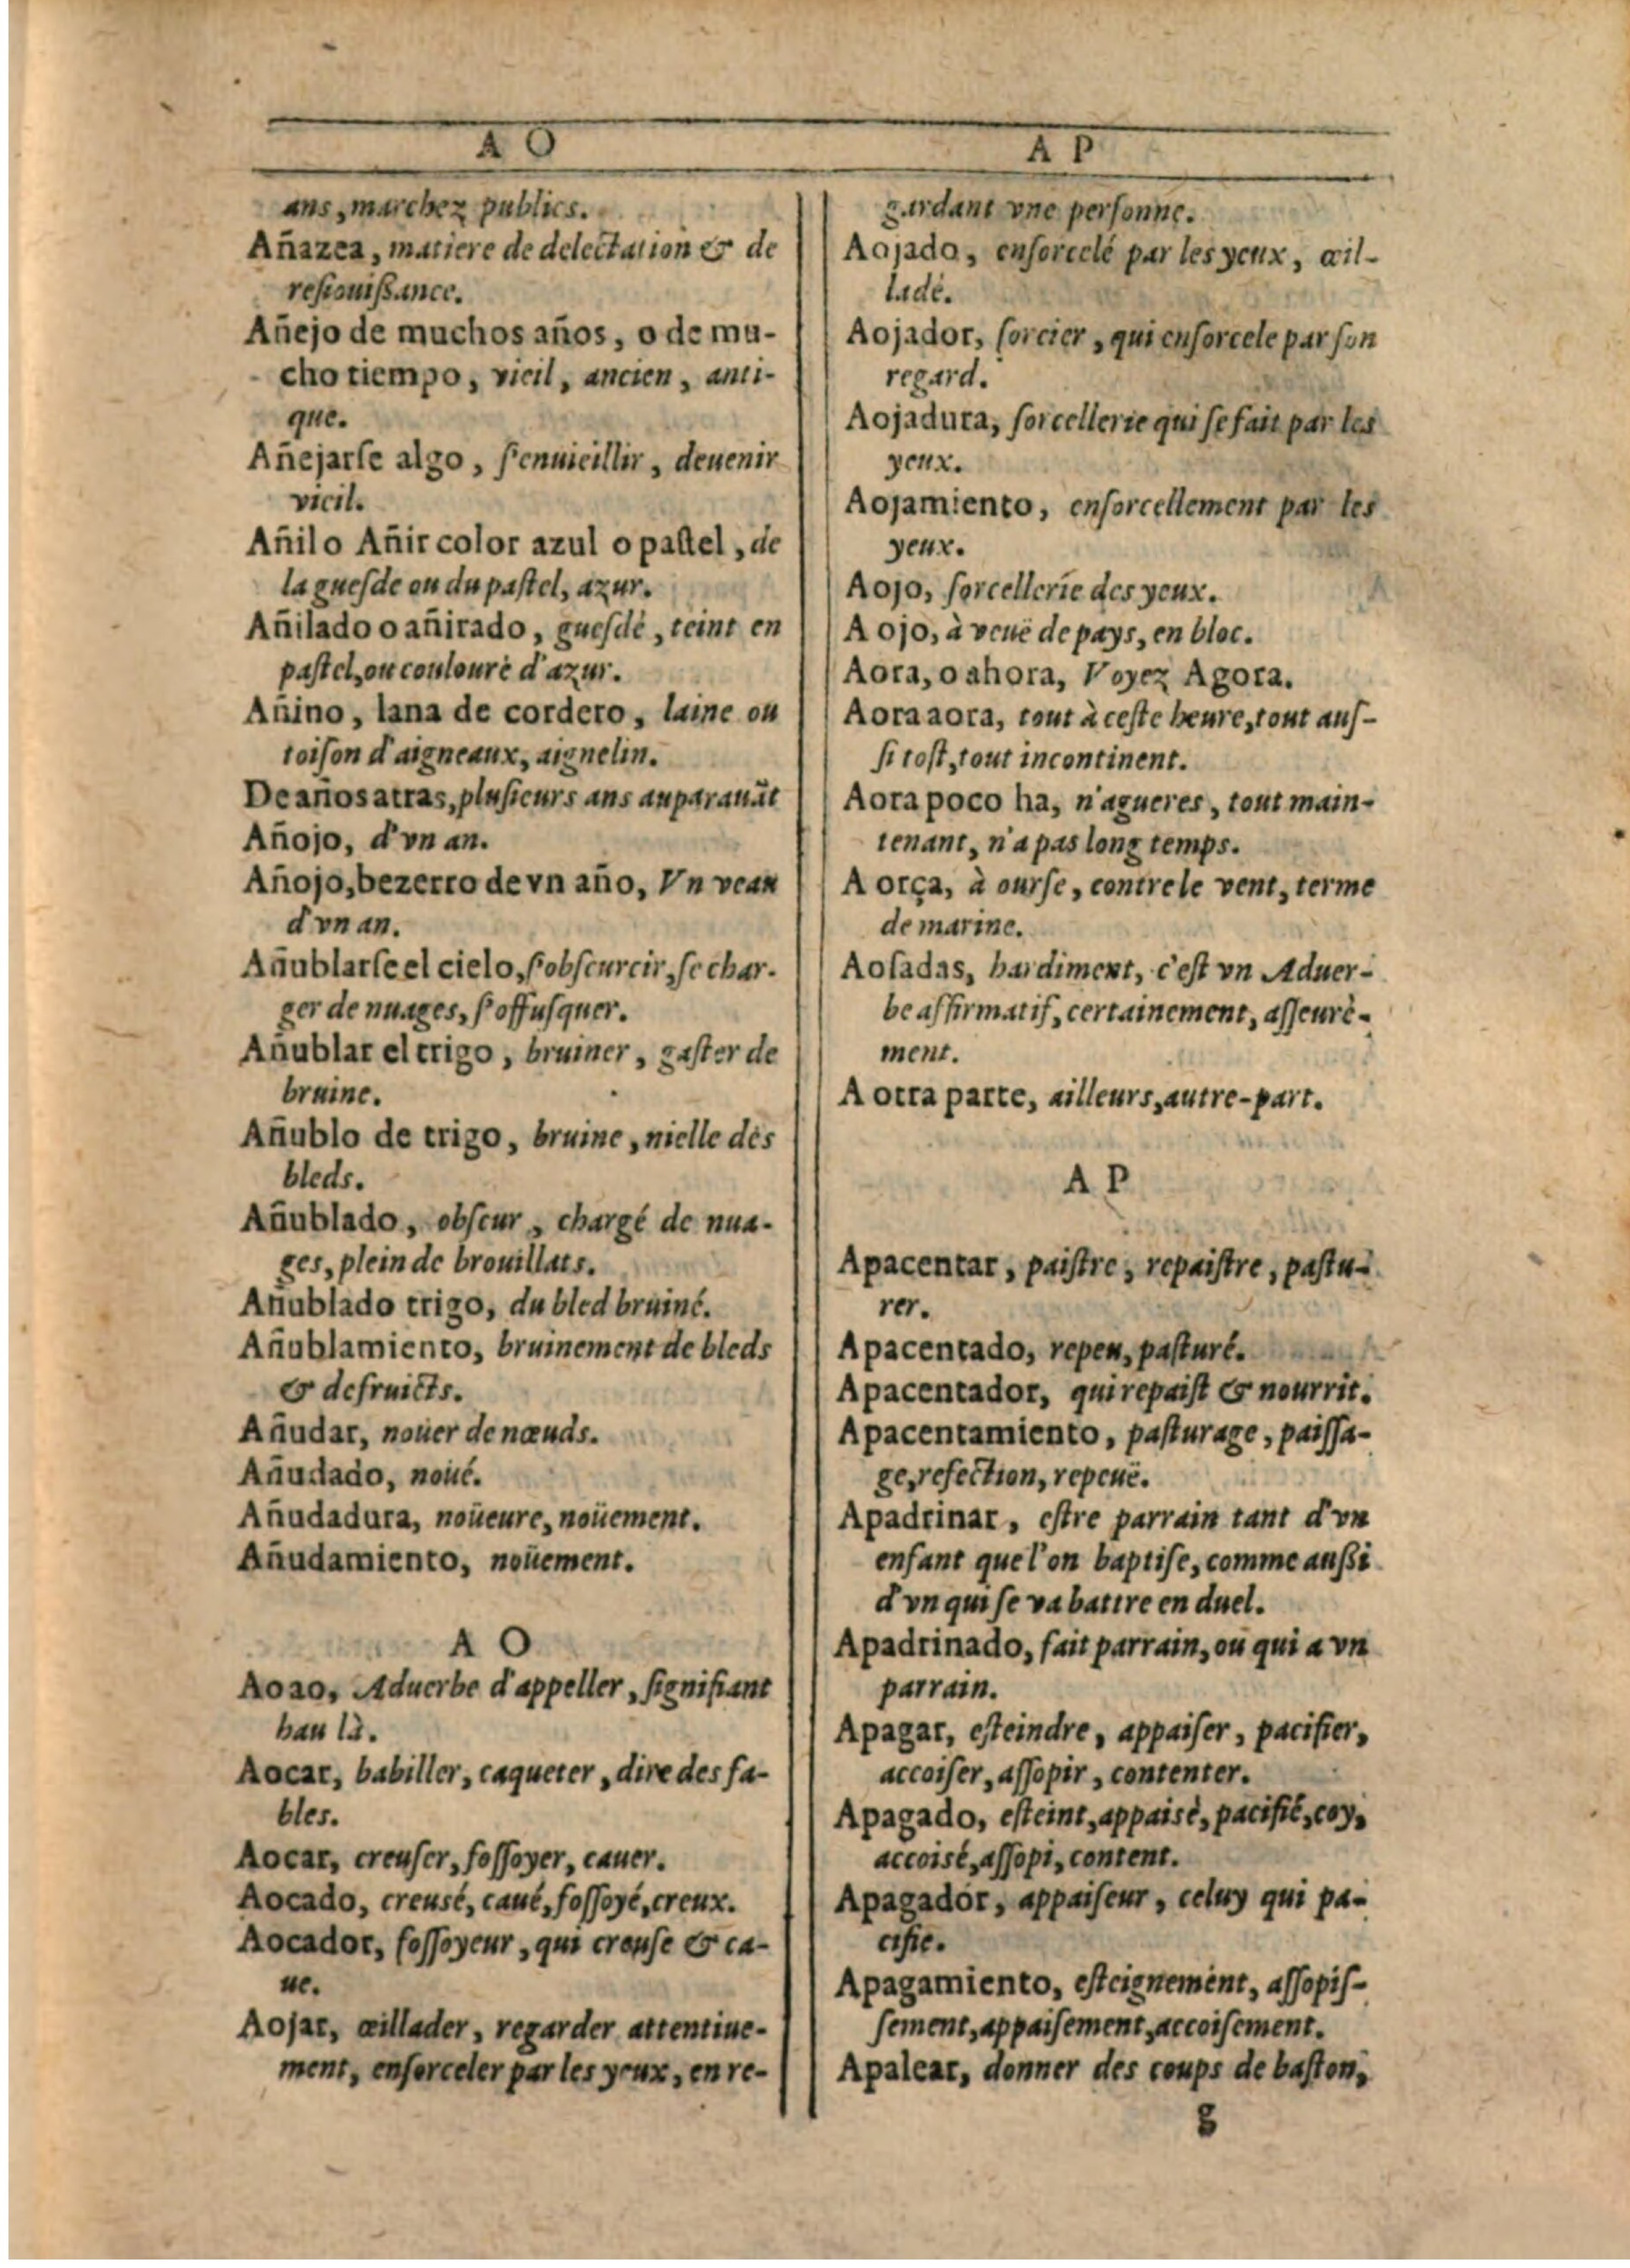 A O
ans, marchez publics.
Añazea, matiere de delectation & de
resiouißance.
Añejo de muchos años, o de mu-
cho tiempo, vieil, ancien, anti-
que.
Añejarſe algo, ſ'enuieillir, deuenir
vieil.
Añil o Añir color azul o paſtel, de
la gueſde ou du paſtel, azur.
Añilado o añirado, gueſdé, teint en
paſtel, ou coulouré d'azur.
Añino, lana de cordero, laine ou
toiſon d'aigneaux, aignelin.
De años atras, pluſieurs ans auparauãt
Añojo, d'vn an.
Añojo, bezerro de vn año, Vn veau
d'vn an.
Añublarſe el cielo, ſ'obſcurcir, ſe char-
ger de nuages, ſ'offuſquer.
Añublar el trigo, bruiner, gaſter de
bruine.
Añublo de trigo, bruine, nielle des
bleds.
Añublado, obſcur, chargé de nua-
ges, plein de brouillats.
Añublado trigo, du bled bruiné.
Añublamiento, bruinement de bleds
& de fruicts.
Añudar, noüer de nœuds.
Añudado, noüé.
Añudadura, noüeure, noüement.
Añudamiento, noüement.
A O
Aoao, Aduerbe d'appeller, ſignifiant
hau là.
Aocar, babiller, caqueter, dire des fa-
bles.
Aocar, creuſer, foſſoyer, cauer.
Aocado, creusé, caué, foſſoyé, creux.
Aocador, foſſoyeur, qui creuſe & ca-
ue.
Aojar, œillader, regarder attentiue-
ment, enſorceler par les yeux, en re-
A P
gardant vne perſonne.
Aojado, enſorcelé par les yeux, œil-
ladé.
Aojador, ſorcier, qui enſorcele par ſon
regard.
Aojadura, ſorcellerie qui ſe fait par les
yeux.
Aojamiento, enſorcellement par les
yeux.
Aojo, ſorcellerie des yeux.
A ojo, à veuë de pays, en bloc.
Aora, o ahora, Voyez Agora.
Aora aora, tout à ceſte heure, tout auſ-
ſi toſt, tout incontinent.
Aora poco ha, n'agueres, tout main-
tenant, n'a pas long temps.
A orça, à ourſe, contre le vent, terme
de marine.
Aoſadas, hardiment, c'eſt vn Aduer-
be affirmatif, certainement, aſſeurè-
ment.
A otra parte, ailleurs, autre-part.
A P
Apacentar, paiſtre, repaiſtre, paſtu-
rer.
Apacentado, repeu, paſturé.
Apacentador, qui repaiſt & nourrit.
Apacentamiento, paſturage, paiſſa-
ge, refection, repeuë.
Apadrinar, eſtre parrain tant d'vn
enfant que l'on baptiſe, comme außi
d'vn qui ſe va battre en duel.
Apadrinado, fait parrain, ou qui a vn
parrain.
Apagar, eſteindre, appaiſer, pacifier,
accoiſer, aſſopir, contenter.
Apagado, eſteint, appaisé, pacifié, coy,
accoisé, aſſopi, content.
Apagador, appaiſeur, celuy qui pa-
cifie.
Apagamiento, eſteignement, aſſopiſ-
ſement, appaiſement, accoiſement.
Apalear, donner des coups de baſton,
g